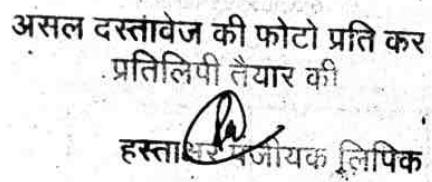 असल दस्तावेज की फोटो प्रति कर
प्रतिलिपी तैयार की
हस्ताक्षर पंजीयक लिपिक